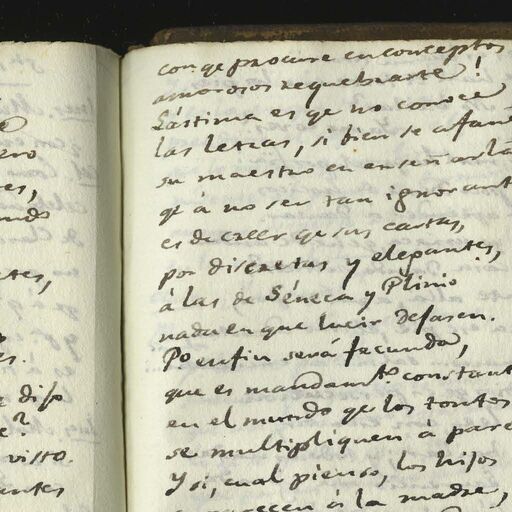 ero
es,
endo
etes,
es.
dijo
e?
visto.
antes
con qe procure en conceptos
amorosos requebrarte!
Lástima es qe no conoce
las letras, si bien se afane
su maestro en enseñarla
qe á no ser tan ignorant
es de creer qe sus cartas,
por discretas y elegantes,
á las de Séneca y Plinio
nada en que lucir dejasen.
Po enfin será fecunda,
que es mandamto constant
en el mundo qe los tontos
se multipliquen á pare
Y si, cual pienso, los hijos
parecen á la madre,